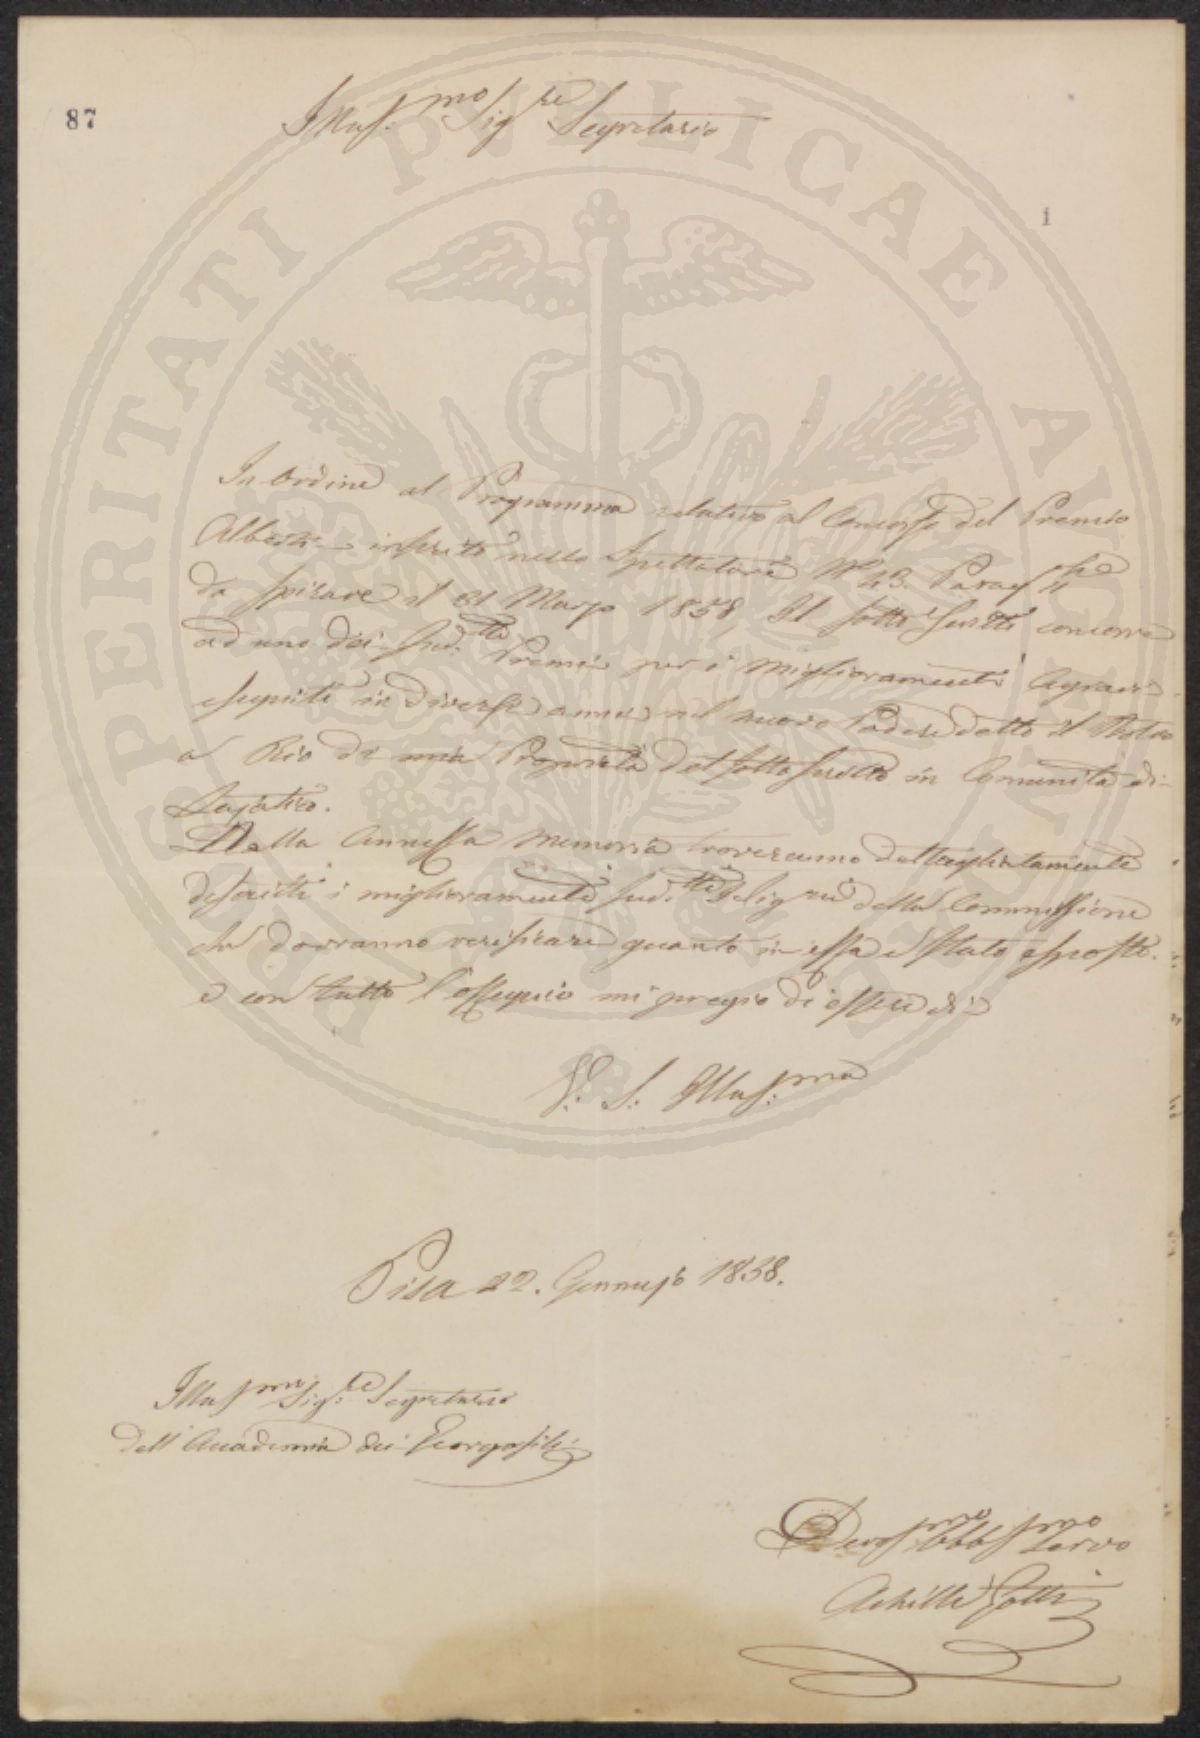 87
Illus:mo Sigre Segretario
1
In Ordine al Programma relativo al Concorso del Premio
Alberti inserito nello Spettatore No 43. Parag
da spirare il 31 Marzo 1858, Il sotto Scritto concorre
ad uno dei Sud.tti Premi per i miglioramenti Agrari
eseguiti in diversi anni nel nuovo Podere detto il
al Rio di mia Proprietà del sotto scritto in Comunità di
Lajatico.
Nella Annessa Memoria troveranno dettagliatamente
descritti i miglioramenti sud.tti della Commissione
che dovranno verificare quanto in essa è stato esposto.
e con tutto l'ossequio mi pregio di essere di
V: S: Illus:ma
Pisa 22. Gennajo 1858.
Illusmo Sig:re Segretario
Dell'Accademia dei Georgofili
Devosmo Obbsmo Servo
Achille
PROSPERITATI PVBLICAE AVGENDAE